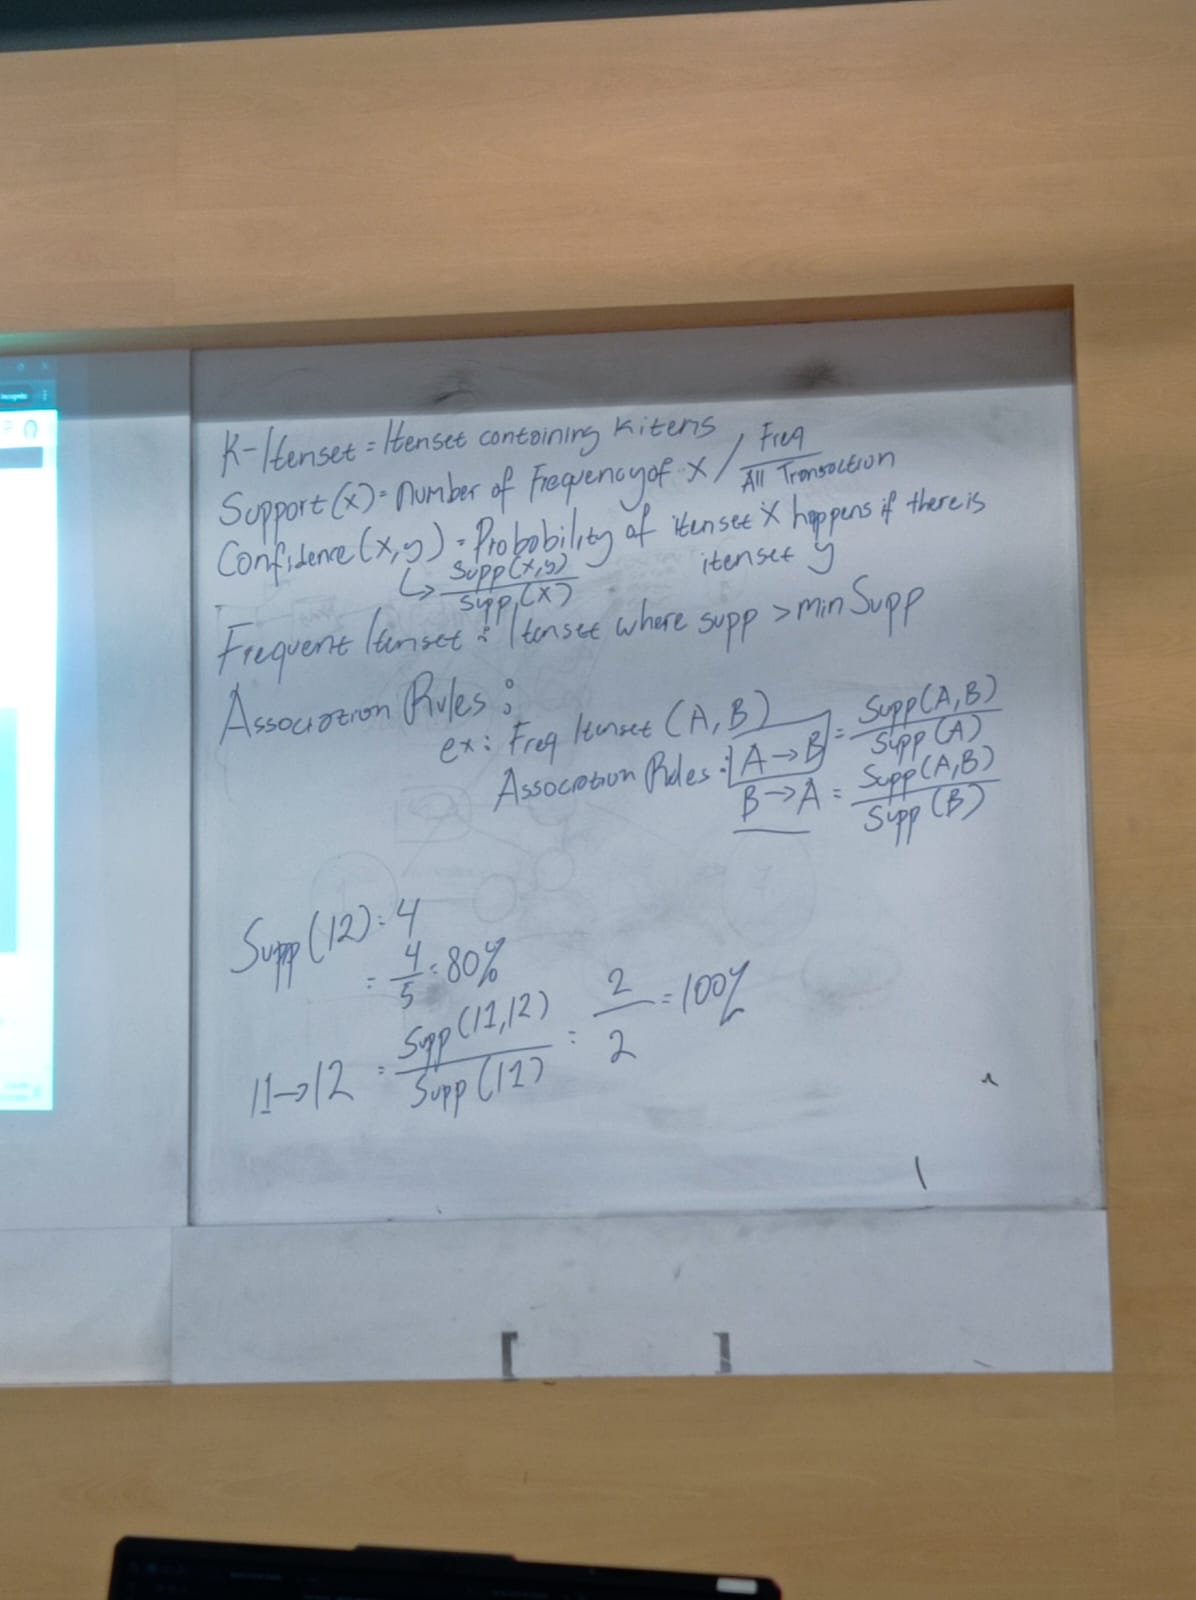 K-Itemset = Itemset containing K items
Support (x) = Number of Frequency of x / Freq / All Transaction
Confidence (x, y) = Probability of itemset X happens if there is itemset y
↳ Supp(x,y) / Supp(x)
Frequent Itemset : Itemset where supp > min Supp
Association Rules :
ex : Freq Itemset (A, B)
Association Rules : A → B = Supp(A,B) / Supp(A)
B → A = Supp(A,B) / Supp(B)
Supp(12) = 4
= 4/5 = 80%
11 → 12 = Supp(11,12) / Supp(11) = 2/2 = 100%
[ ]